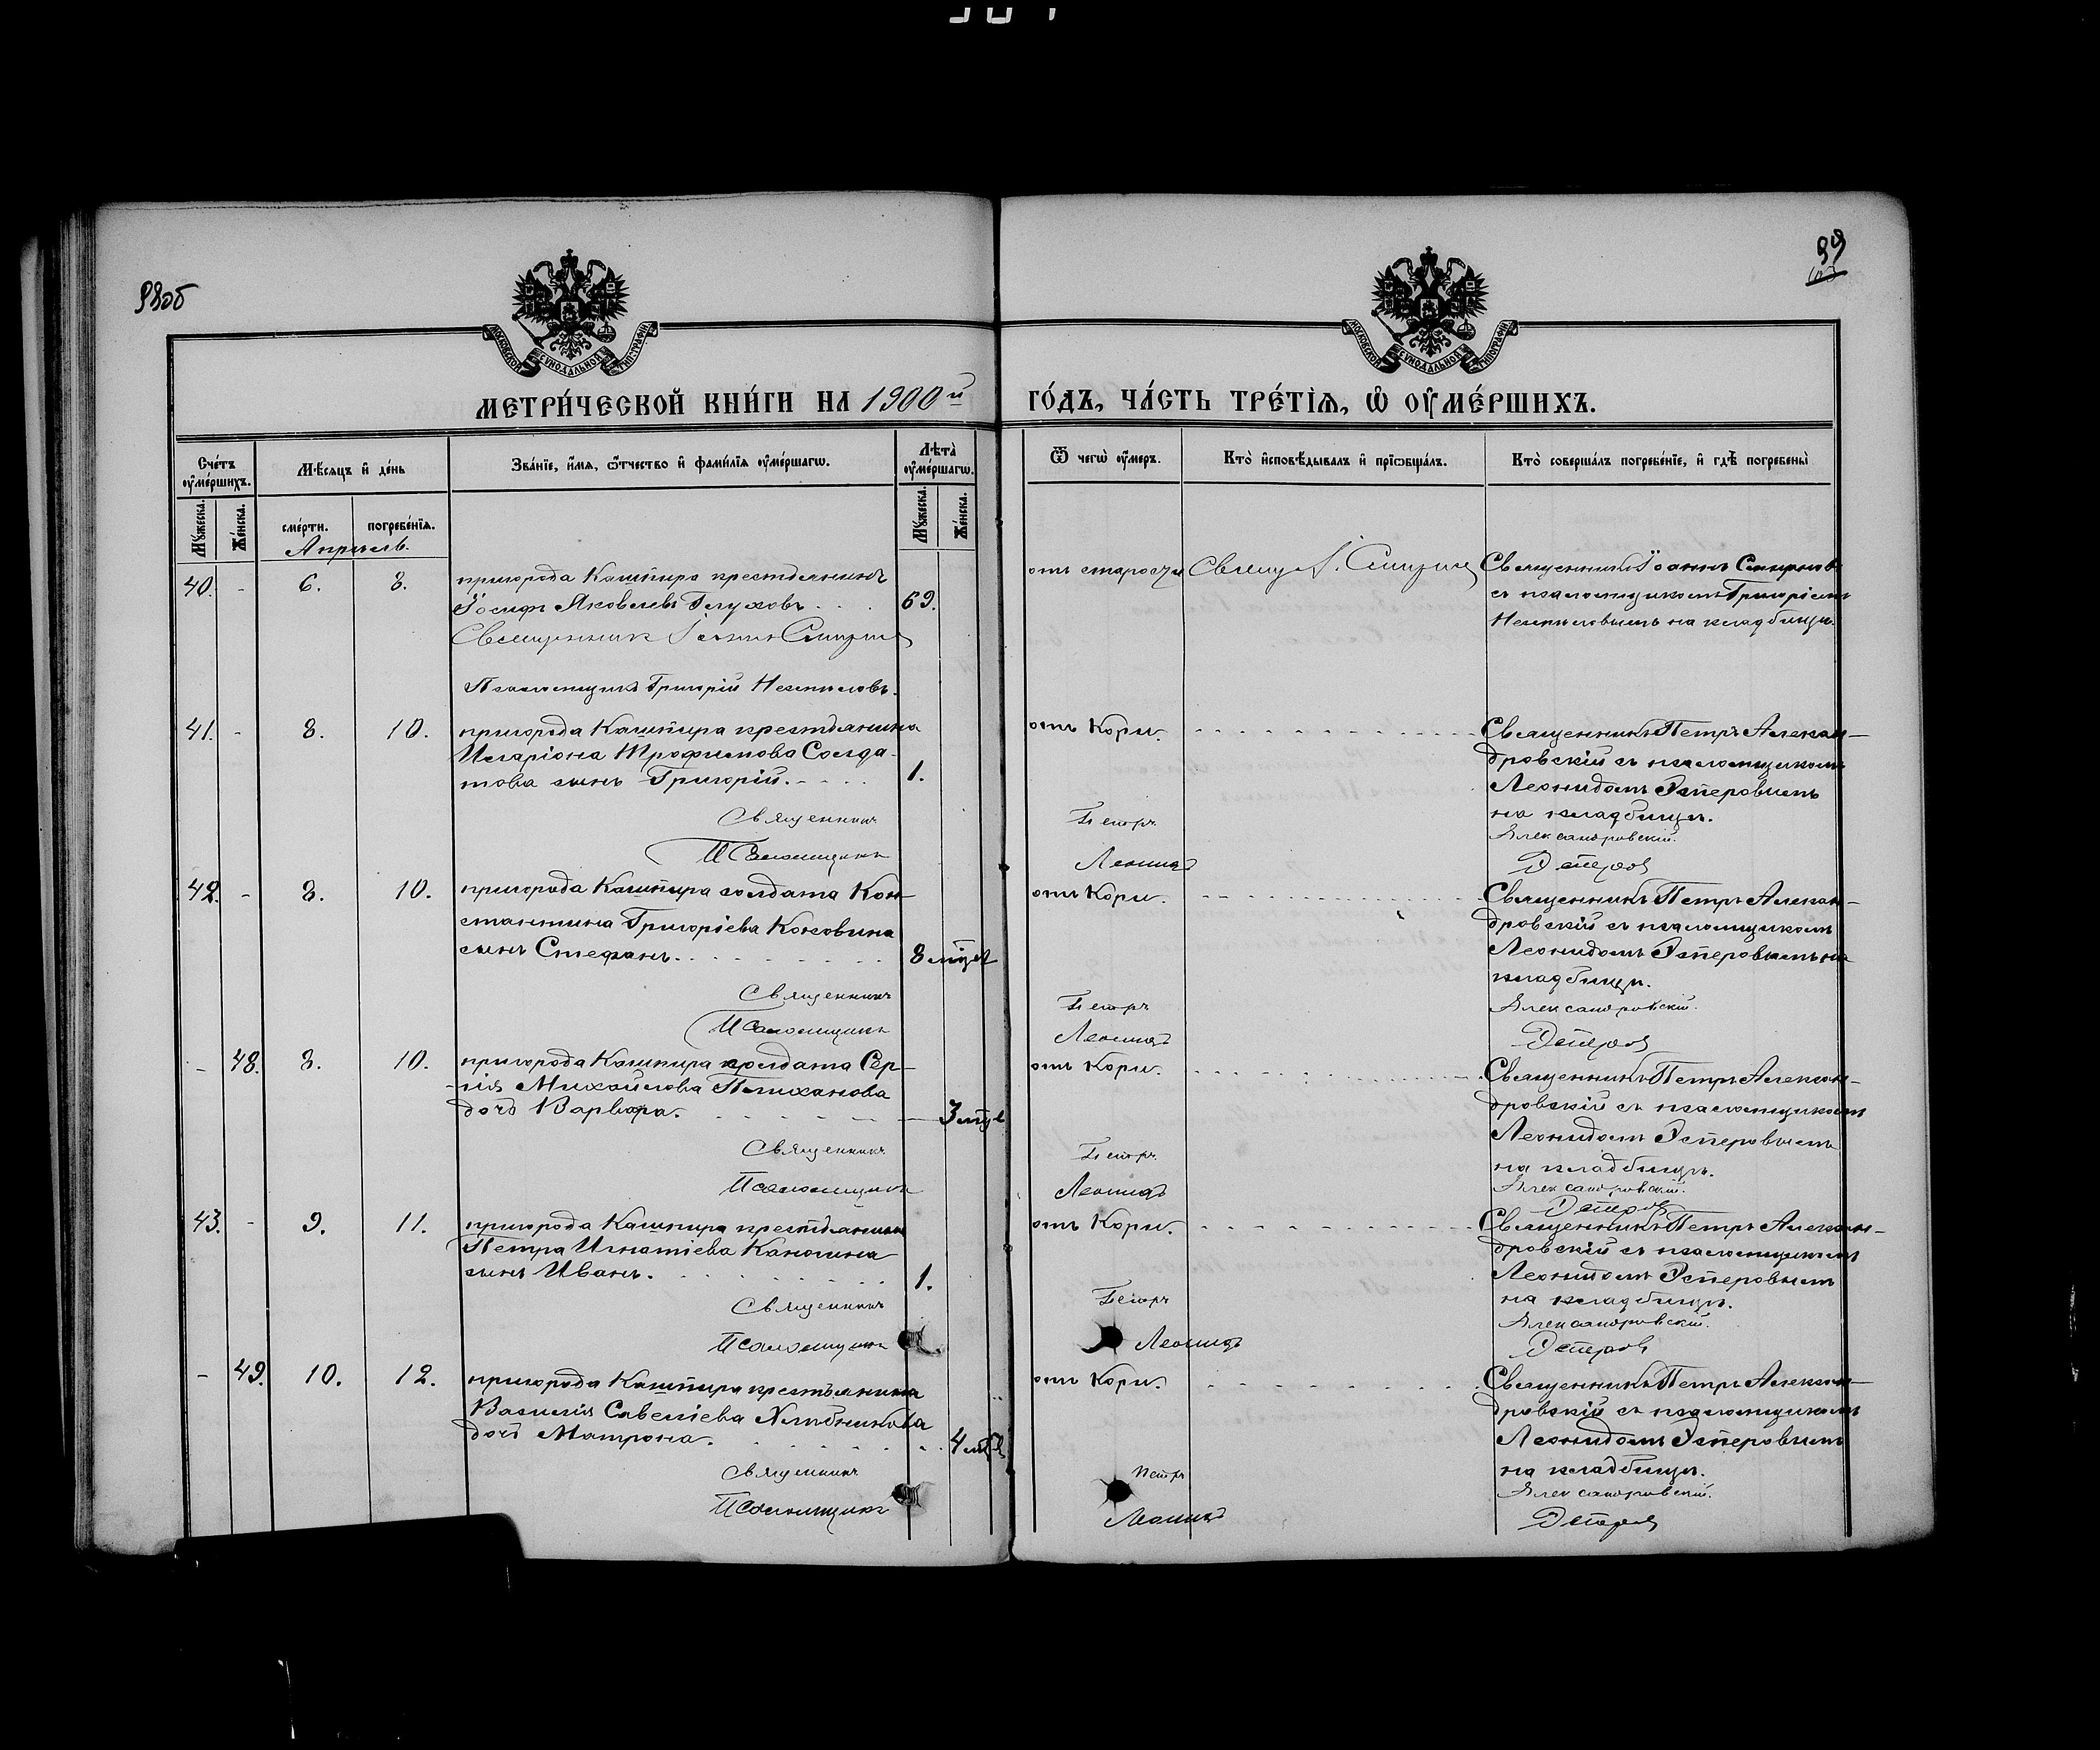 98об
99
МОСКОВСКОЙ СѴНОДАЛЬНОЙ ТИПОГРАФІИ
МОСКОВСКОЙ СѴНОДАЛЬНОЙ ТИПОГРАФІИ
МЕТРИ́ЧЕСКОЙ КНИ́ГИ НА 1900й ГО́ДЪ, ЧА́СТЬ ТРЕ́ТІѦ, Ѽ ОУ҆МЕ́РШИХЪ.
Сче́тъ оу҆ме́ршихъ.
Мꙋ́жеска.
Же́нска.
Мѣ́сяцъ и҆ де́нь
сме́рти.
погребе́нїѧ.
Зва́нїе, и҆́мѧ, ѻ҆́тчество и҆ фами́лїѧ оу҆ме́ршагѡ.
Лѣта̀ оу҆ме́ршагѡ.
Мꙋ́жеска.
Же́нска.
Ѿ чегѡ̀ оу҆́меръ.
Кто̀ и҆сповѣ́дывалъ и҆ прїѡбща́лъ.
Кто̀ соверша́лъ погребе́нїе, и҆ гдѣ̀ погребены̀
Апрѣль.
40. - 6. 8. пригорода Кашпира крестьянинъ
Іосифъ Яковлевъ Глуховъ. 69.
Священникъ Іоаннъ Смирнов
Псаломщикъ Григорій
от старости Священ. І. Смирнов
Священникъ Іоаннъ Смирновъ
съ псаломщикомъ Григоріемъ
на кладбищѣ.
41. - 8. 10. пригорода Кашпира крестьянина
Иларіона Трофимова Солда-
това сынъ Григорій. 1.
Священникъ
Псаломщикъ
отъ Кори.
Петръ
Леонидъ
Священникъ Петръ Алексан-
дровскій съ псаломщикомъ
Леонидомъ Эстеровымъ
на кладбищѣ.
Александровскій.
Эстеров
42. - 8. 10. пригорода Кашпира солдата Кон-
стантина Григоріева Коновина
сынъ Стефанъ. 8 мцев
Священникъ
Псаломщикъ
отъ Кори.
Петръ
Леонидъ
Священникъ Петръ Алексан-
дровскій съ псаломщикомъ
Леонидомъ Эстеровымъ на
кладбищѣ.
Александровскій.
Эстеров
- 48. 8. 10. пригорода Кашпира солдата Сер-
гія Михайлова Плиханова
дочь Варвара. 3 мце
Священникъ
Псаломщикъ
отъ Кори.
Петръ
Леонидъ
Священникъ Петръ Алексан-
дровскій съ псаломщикомъ
Леонидомъ Эстеровымъ
на кладбищѣ.
Александровскій.
Эстеров
43. - 9. 11. пригорода Кашпира крестьянина
Петра Игнатіева Канюгина
сынъ Иванъ. 1.
Священникъ
Псаломщикъ
отъ Кори.
Петръ
Леонидъ
Священникъ Петръ Алексан-
дровскій съ псаломщикомъ
Леонидомъ Эстеровымъ
на кладбищѣ.
Александровскій.
Эстеров
- 49. 10. 12. пригорода Кашпира крестьянина
Василія Савеліева Хлѣбникова
дочь Матрона. 4 мцв
Священникъ
Псаломщикъ
отъ Кори.
Петръ
Леонидъ
Священникъ Петръ Алексан-
дровскій съ псаломщикомъ
Леонидомъ Эстеровымъ
на кладбищѣ.
Александровскій.
Эстеров